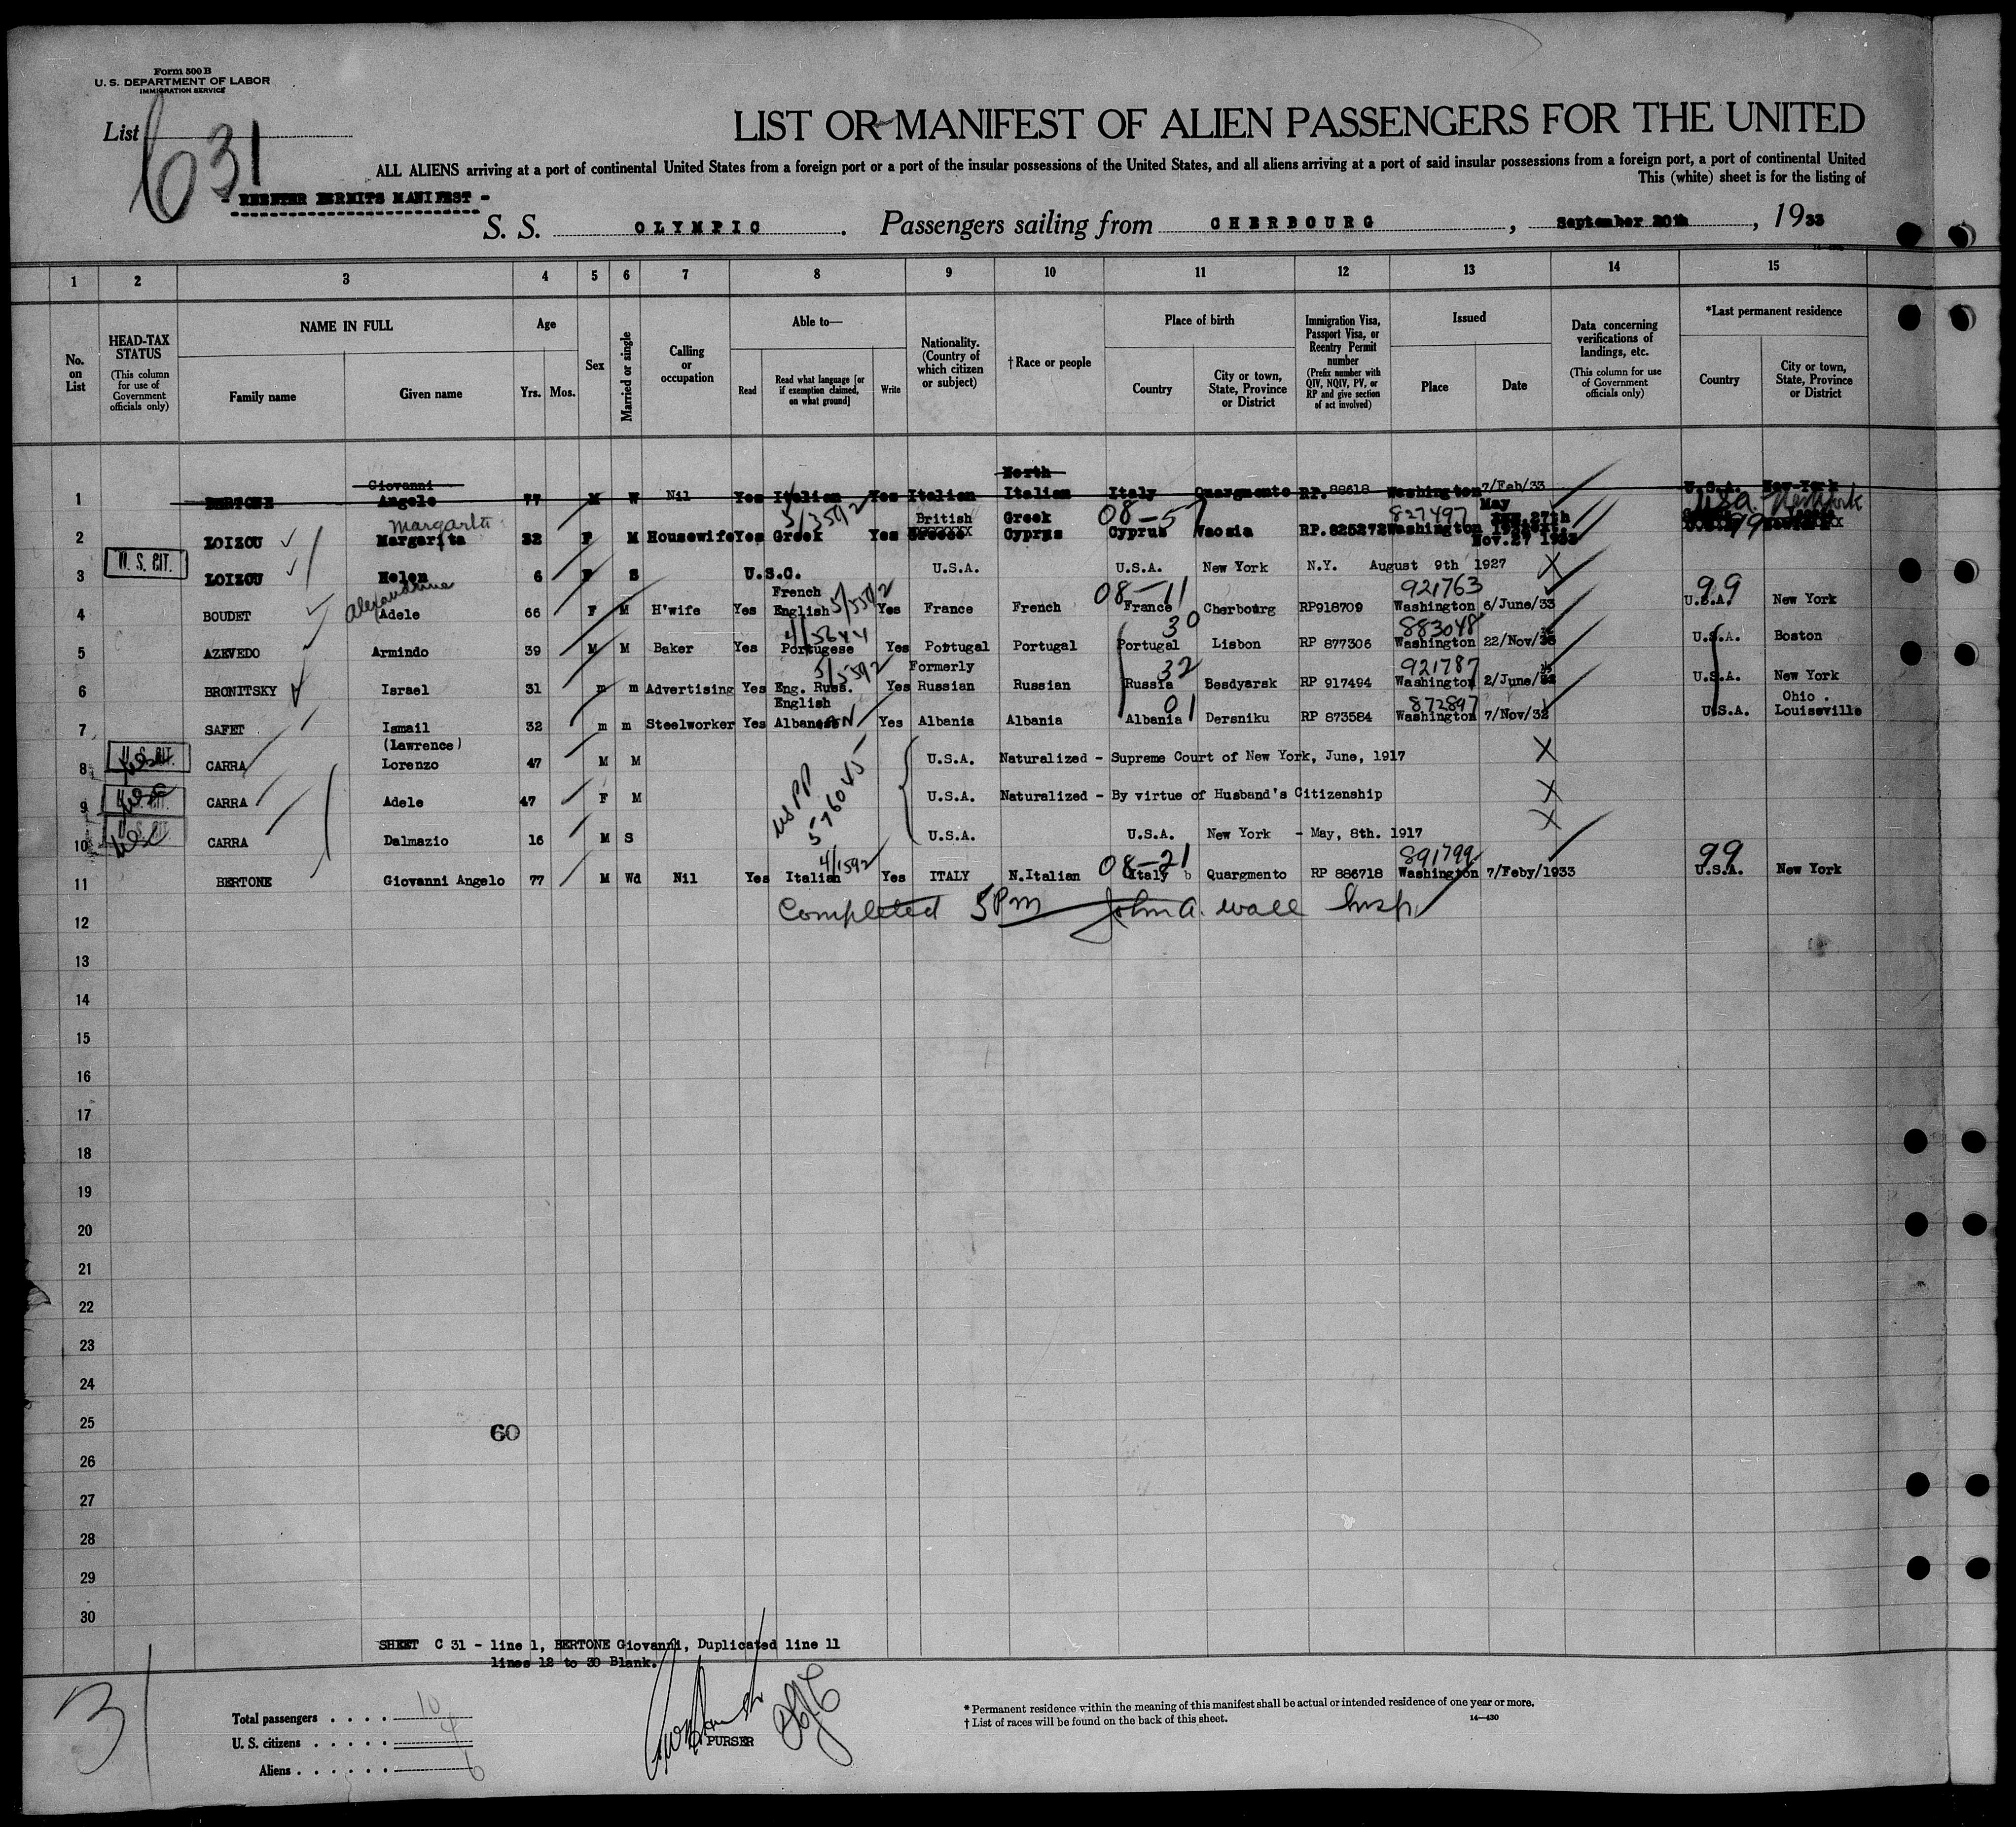 Form 500 B
U. S. DEPARTMENT OF LABOR
IMMIGRATION SERVICE
List 631
LIST OR MANIFEST OF ALIEN PASSENGERS FOR THE UNITED
ALL ALIENS arriving at a port of continental United States from a foreign port or a port of the insular possessions of the United States, and all aliens arriving at a port of said insular possessions from a foreign port, a port of continental United
This (white) sheet is for the listing of
- REENTER PERMITS MANIFEST -
S. S. OLYMPIC. Passengers sailing from CHERBOURG, September 20th, 1933
1 2 3 4 5 6 7 8 9 10 11 12 13 14 15
No. on List
HEAD-TAX STATUS (This column for use of Government officials only)
NAME IN FULL Family name Given name
Age Yrs. Mos.
Sex
Married or single
Calling or occupation
Able to— Read Read what language [or if exemption claimed, on what ground] Write
Nationality. (Country of which citizen or subject)
†Race or people
Place of birth Country City or town, State, Province or District
Immigration Visa, Passport Visa, or Reentry Permit number (Prefix number with QIV, NQIV, PV, or RP and give section of act involved)
Issued Place Date
Data concerning verifications of landings, etc. (This column for use of Government officials only)
*Last permanent residence Country City or town, State, Province or District
North
Giovanni
1 BERTONE Angelo 77 M W Nil Yes Italian Yes Italian Italian Italy Quargmento RP. 88618 Washington 7/Feb/33 U.S.A. New York
Margarita 5/3592 British Greek 08-57 827497 May USA. New York
2 LOIZOU Margarita 32 F M Housewife Yes Greek Yes Cyprus Cyprus Vaosia RP. 825272 Washington
Nov. 27 1933
U. S. CIT.
3 LOIZOU Helen 6 F S U.S.C. U.S.A. U.S.A. New York N.Y. August 9th 1927 X
Alexandrine French 5/3592 08-11 921763 99
4 BOUDET Adele 66 F M H'wife Yes English Yes France French France Cherbourg RP918709 Washington 6/June/33 U.S.A. New York
4/5644 30 883048
5 AZEVEDO Armindo 39 M M Baker Yes Portugese Yes Portugal Portugal Portugal Lisbon RP 877306 Washington 22/Nov/ U.S.A. Boston
5/5592 Formerly 32 921787
6 BRONITSKY Israel 31 m m Advertising Yes Eng. Russ. Yes Russian Russian Russia Besdyarsk RP 917494 Washington 2/June/ U.S.A. New York
English 01 872897 Ohio.
7 SAFET Ismail 32 m m Steelworker Yes Albanean Yes Albania Albania Albania Dersniku RP 873584 Washington 7/Nov/32 U.S.A. Louiseville
(Lawrence)
U. S. CIT.
8 CARRA Lorenzo 47 M M U.S.A. Naturalized - Supreme Court of New York, June, 1917 X
U. S. CIT.
9 CARRA Adele 47 F M US PP 576045 U.S.A. Naturalized - By virtue of Husband's Citizenship X
U. S. CIT.
USC
10 CARRA Dalmazio 16 M S U.S.A. U.S.A. New York - May, 8th. 1917 X
4/1592 08-21 891799 99
11 BERTONE Giovanni Angelo 77 M Wd Nil Yes Italian Yes ITALY N.Italian Italy Quargmento RP 886718 Washington 7/Feby/1933 U.S.A. New York
12 Completed 5 Pm John A. Wall Insp
13
14
15
16
17
18
19
20
21
22
23
24
25
60
26
27
28
29
30
SHEET C 31 - line 1, BERTONE Giovanni, Duplicated line 11
lines 12 to 30 Blank.
31
Total passengers . . . . 10
U. S. citizens . . . . . 4
Aliens . . . . . . 6
PURSER
* Permanent residence within the meaning of this manifest shall be actual or intended residence of one year or more.
† List of races will be found on the back of this sheet.
14—430